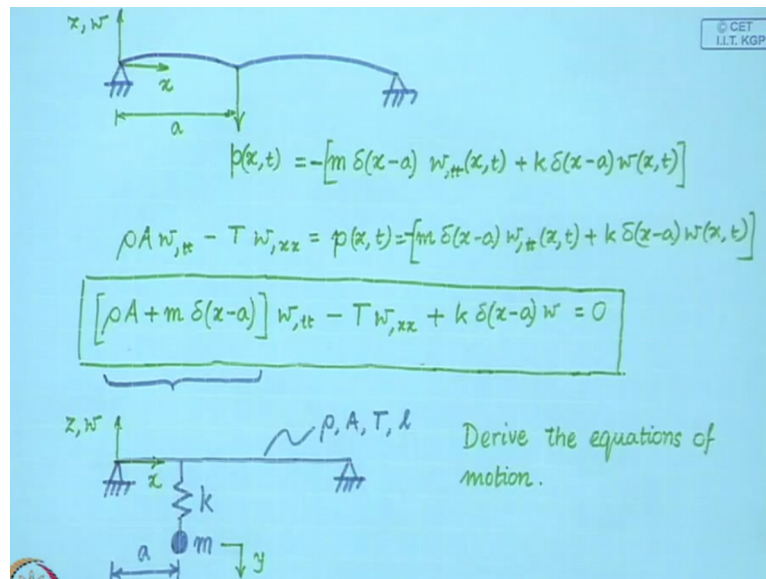 z, w
© CET
I.I.T. KGP
x
a
p(x,t) = -[m δ(x-a) w,tt(x,t) + k δ(x-a) w(x,t)]
ρA w,tt - T w,xx = p(x,t) = -[m δ(x-a) w,tt(x,t) + k δ(x-a) w(x,t)]
[ρA + m δ(x-a)] w,tt - T w,xx + k δ(x-a) w = 0
z, w
ρ, A, T, l
Derive the equations of
motion.
x
k
m
a
y